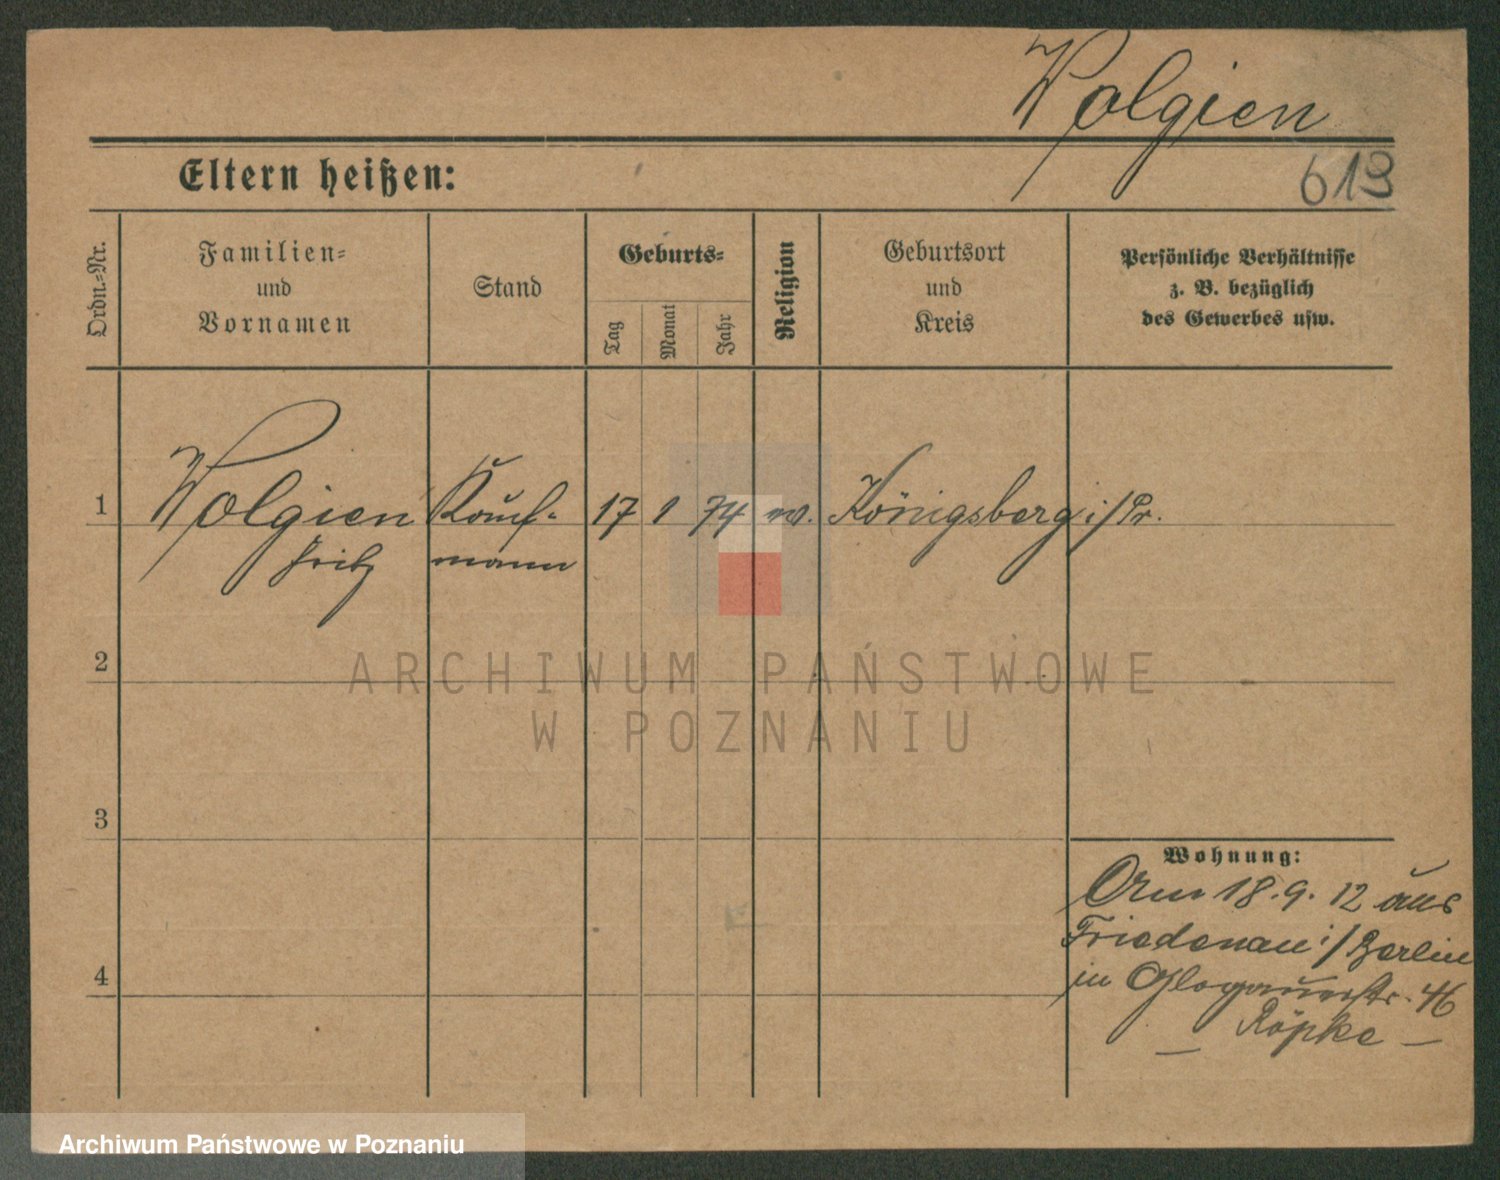 Wolgien
Eltern heißen:
613
Ordn.=Nr.
Familien=
und
Vornamen
Stand
Geburts=
Tag
Monat
Jahr
Religion
Geburtsort
und
Kreis
Persönliche Verhältnisse
z. B. bezüglich
des Gewerbes usw.
1
Wolgien
Fritz
Kauf-
mann
17
1
74
Königsberg i/Pr.
2
ARCHIWUM PAŃSTWOWE
W POZNANIU
3
Wohnung:
18.9.12 aus
Friedenau i/Berlin
4
in Glogauerstr. 46
— Röpke —
Archiwum Państwowe w Poznaniu